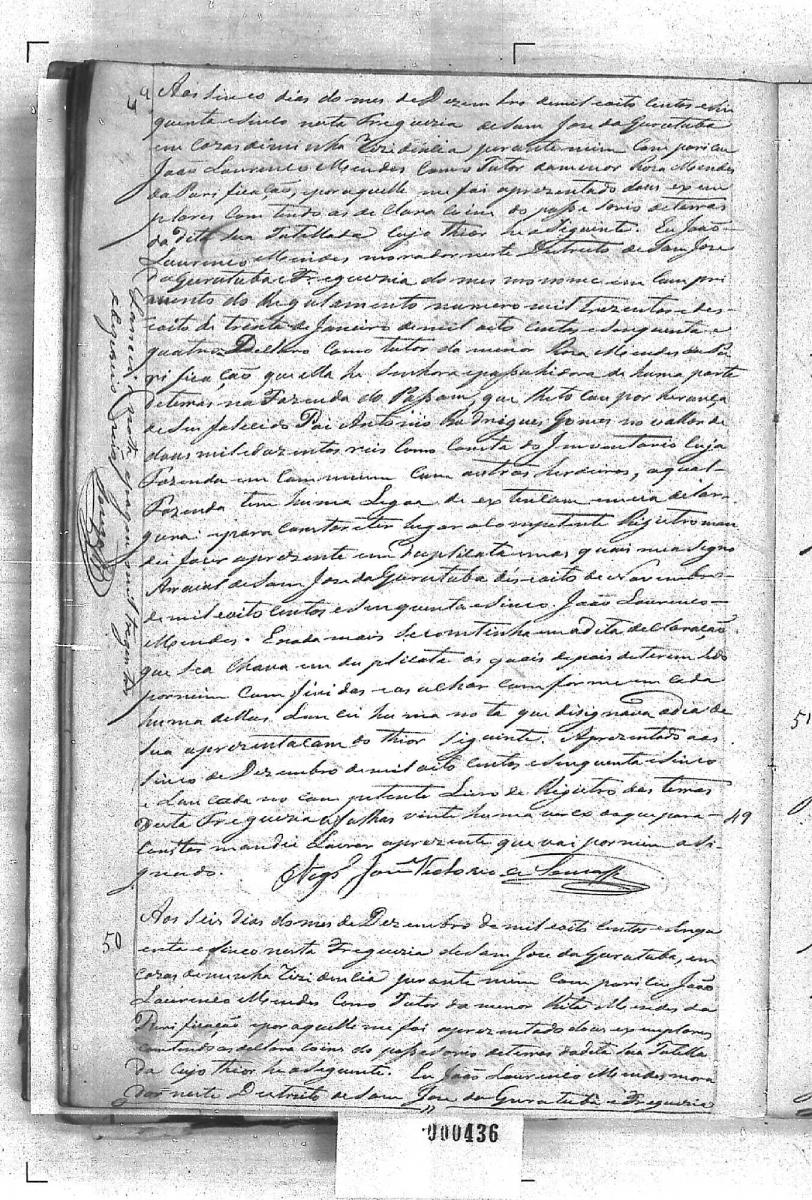 49
Aos sinco dias do mes de Dezembro de mil oito centos e sin
quenta e sinco nesta Freguezia de Sam Jose da Guratuba
em cazas de minha Rizidencia perante mim com pariceu
João Lourenco Mendes como Tutor da menor Roza Mendes
da Purificação, e por aquelle me foi aprezentado dous exem
plares Com tendo as de clara coins do possesorio de terras
da dita sua Tutellada Cujo thior he a Siguinte. Eu João
Laurenco Mendes morador neste Destruto de Sam Jose
da Guratuba e Freguezia do mes mo nome em Com pri
mento do Regulamento numero mil trezentos e des
oito de trenta de Janeiro de mil oito centos e sinquenta e
quatro. Declaro como tutor da menor Roza Mendes da Pu
rificação que ella he Senhora e possuhidora de huma parte
de terras na Fazenda do Passam, que lhe to cou por herança
de seu falecido Pai Antonio Rodrigues Gomes no vallor de
dous mil e duzentos reis como consta do Inventario Cuja
Fazenda em Com mum Com outros herdeiros, a qual
Fazenda tem huma Legoa de ex tencam e meia de lar
gura: e para constar e ter lugar a Competente Registro man
dei fazer aprezente em Duplicata nas quais me asegno
Araial de Sam Jose da Guratuba des oito de Novembro
de mil eoito centos e Sinquenta e Sinco. João Lourenco
Mendes. E nada mais Se continha em a dita de claracão
que Se a Chava em du plicata as quais depois de terem lido
por mim Com firidas e as achar com for me em cada
huma dellas Lan cei huma no ta que designava a dea de
sua aprezentacam do thior siguinte. Aprezentado aos
sinco de Dezembro de mil oito centos e sinquenta e sinco
e Lan cada no com petente Livro de Registro das terras
desta Freguezia a folhas vinte huma verço do que para
constar mandei Lavrar aprezente que vai por mim asi
gnado.
50
Aos Seis dias do mes de Dezembro de mil oito centos e sinqu
enta e sinco nesta Freguezia de Sam Jose da Guratuba, em
cazas de minha Rizidencia perante mim com pariceu João
Laurenco Mendes Como Tutor da menor Rita Mendes da
Purificação e por aquelle me foi aprezentado dous exemplares
contendo as declara coins do possesorio de terras da dita sua Tutella
da cujo thior he a Siguinte. Eu João Lourenco Mendes mora
dor neste Destruto de Sam Jose da Guratuba e Freguezia
49
51
000436